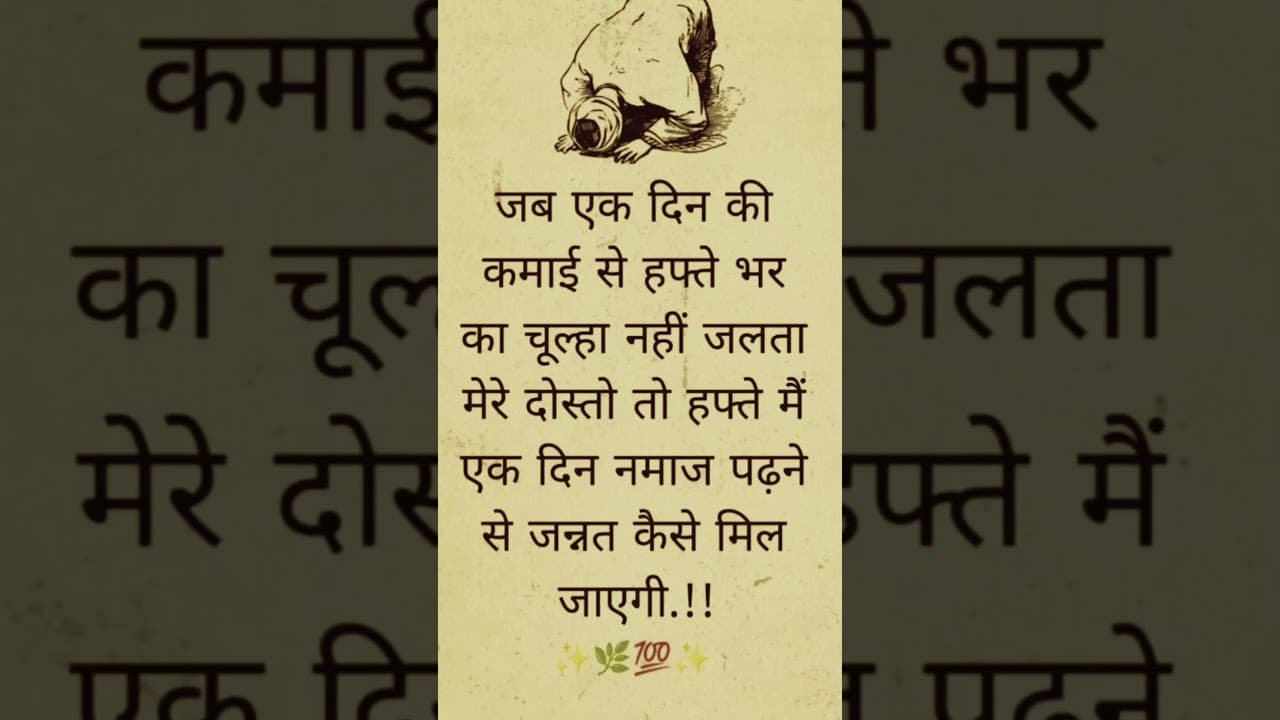 जब एक दिन की
कमाई से हफ्ते भर
का चूल्हा नहीं जलता
मेरे दोस्तो तो हफ्ते मैं
एक दिन नमाज पढ़ने
से जन्नत कैसे मिल
जाएगी.!!
✨🌿💯✨